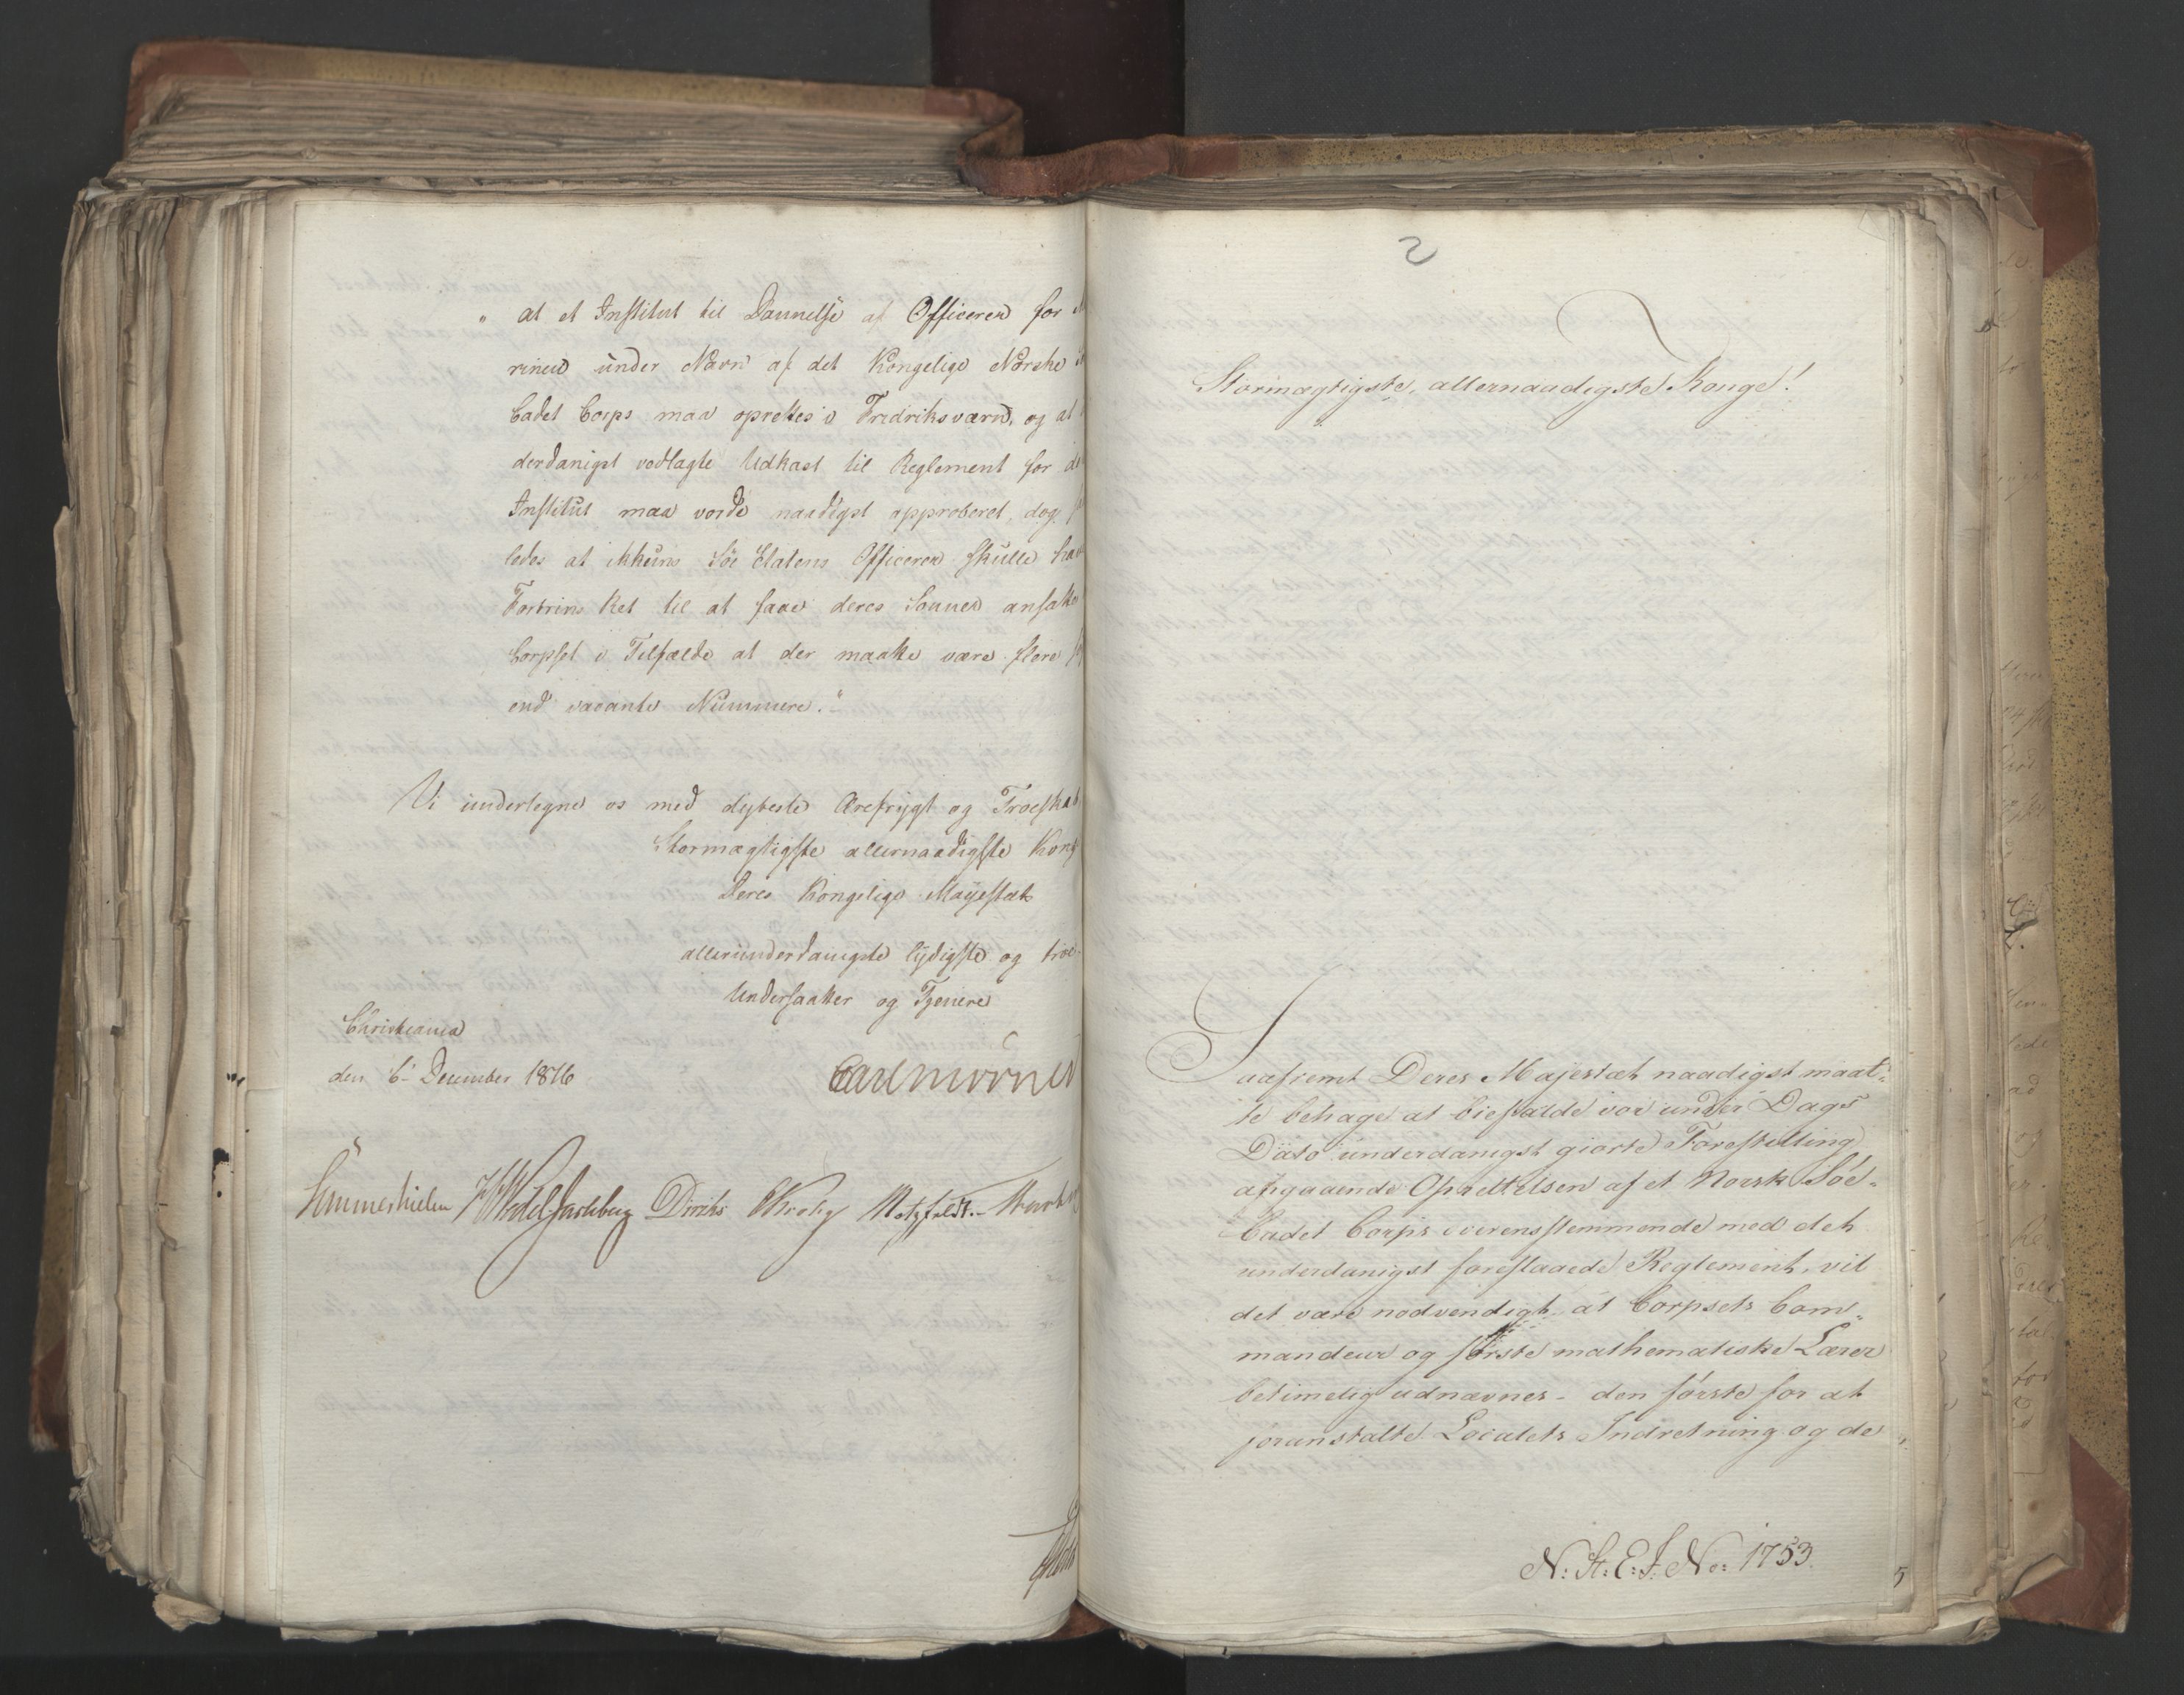 " at et Institut til Dannelse af Officerer for
rinen under Navn af det Kongelige Norske
Cadet Corps maa oprettes i Fredriksværn, og at
derdanigst vedlagte Udkast til Reglement for
Institut maa vorde naadigst approberet, dog
ledes at ikkuns Söe Etatens Officerer skulle have
Fortrins Ret til at faae deres Sønner ansatte
Corpset i Tilfælde at der maatte være flere
end vacante Nummere."
Vi undertegne os med dybeste Ærefrygt og Troeskab
Stormægtigste allernaadigste Kong
Deres Kongelige Mayestæts
allerunderdanigste lydigste og troe
Undersaatter og Tjenere
Christiania
den 6te December 1816
Carl Mörner
Sommerhielm HWedel Jarlsberg Diriks Krohg Motzfeldt
2
Stormægtigste, allernaadigste Konge!
Saafremt Deres Majestæt naadigst maat-
te behage at biefalde vor under Dags
Dato underdanigst giorte Forestilling
angaaende Oprettelsen af et Norsk Söe-
Cadet Corps overensstemmende med det
underdanigst foreslaaede Reglement, vil
det være nødvendigt at Corpsets Com-
mandeur og første mathematiske Lærer
betimelig udnævnes - den første for at
foranstalte Localets Indretning og de
N: St: E: J: No: 1753.